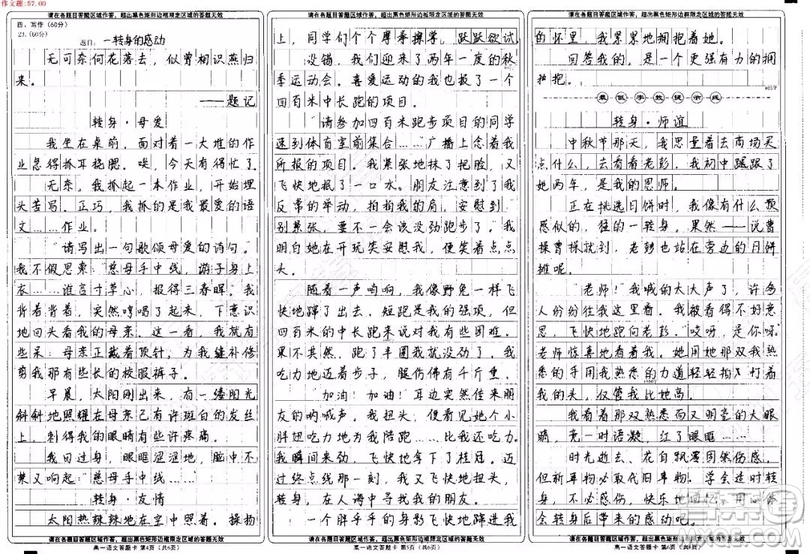 作文题:57.00
请在各题目区域作答，超出黑色矩形边框限定区域的答题无效
四、写作（60分）
23.（60分）
题目：一转身的感动
无可奈何花落去，似曾相识燕归
来。
——题记
转身·母爱
我坐在桌前，面对着一大堆的作
业急得抓耳挠腮。唉，今天作业有得忙了。
无奈，我抓起一本作业，开始埋
头苦写。正巧，我抓的是我最爱的语
文……作业。
“请写出一句歌颂母爱的诗句。”
我不假思索：慈母手中线，游子身上
衣……谁言寸草心，报得三春晖。我
背着背着，突然哼唱了起来，下意识
地回头看我的母亲。这一看，我就有
些呆：母亲正戴着顶针，为我缝补修
剪我那有些长的校服裤子。
早晨，太阳刚出来，有一缕阳光
斜斜地照耀在母亲已有许斑白的发丝
上，刺得我的眼睛有些许疼痛。
我回过身，眼眶涩涩地，脑中不
禁又响起：“慈母手中线……”
转身·友情
太阳热辣辣地在空中照着。操场
请在各题目区域作答，超出黑色矩形边框限定区域的答题无效
高一语文答题卡 第4页（共6页）
请在各题目区域作答，超出黑色矩形边框限定区域的答题无效
上，同学们个个摩拳擦掌，跃跃欲试
。没错，我们迎来了两年一度的秋
季运动会。喜爱运动的我也报了一个
四百米中长跑的项目。
“请参加四百米跑步项目的同学
速到体育室前集合……”广播上念着我
所报的项目。我紧张地抹了把脸，又
飞快地报了一口水。朋友注意到了我
反常的举动，拍拍我的肩，安慰到：“
别紧张，要不一会该没劲跑步了。”我
明白她在开玩笑安慰我，便笑着点点
头。
随着一声哨响，我像野兔一样飞
快地蹿了出去，短跑是我的强项，但
四百米的中长跑来说对我有些困难。
果不其然，跑了半圈我就没劲了，我
吃力地迈着步子，腿仿佛有千斤重，
“加油！加油！”耳边突然传来朋
友的呐喊声。我扭头，便看见她小个
胖妞吃力地为我陪跑……比我还吃力。
我瞬间来劲，飞快地拿下了桂冠。迈
过终点线那一刻，我又飞快地扭头，
转身，在人海中寻找我的朋友。
一个胖乎乎的身影飞快地蹿进我
请在各题目区域作答，超出黑色矩形边框限定区域的答题无效
高一语文答题卡 第5页（共6页）
请在各题目区域作答，超出黑色矩形边框限定区域的答题无效
的怀里，我累累地拥抱着她。
回答我的，是一个更强有力的拥
抱。
转身·师谊
中秋节那天，我思量着去商场买
点什么，去看看老彭，我初中跟跟了
她两年，是我的恩师。
正在挑选月饼时，我像有什么预
感似的，猛的一转身。果然——说曹
操曹操就到，老彭也站在旁边的月饼
摊呢。
“老师！”我喊的大大声了，许多
人纷纷往我这边看来。我不以为
意，飞快地跑向老彭。“哎呀，是你呀。”
老师惊喜地看着我。她用她那双我熟
悉的手用我熟悉的力道轻轻抚摸着我
的头，仅管我比她高。
我看着那双熟悉而又明莹的大眼
睛，一时语凝，红了眼眶……
时光逝去，花自飘零固然伤感，
但年华可为你拾取旧事。学会适时转
身，不必感伤，快乐地回忆，用体
会转身后带来的感动吧。
请在各题目区域作答，超出黑色矩形边框限定区域的答题无效
高一语文答题卡 第6页（共6页）